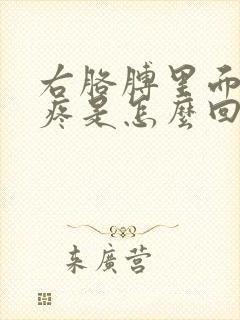 右胳膊里面
疼是怎麼回
来廣营